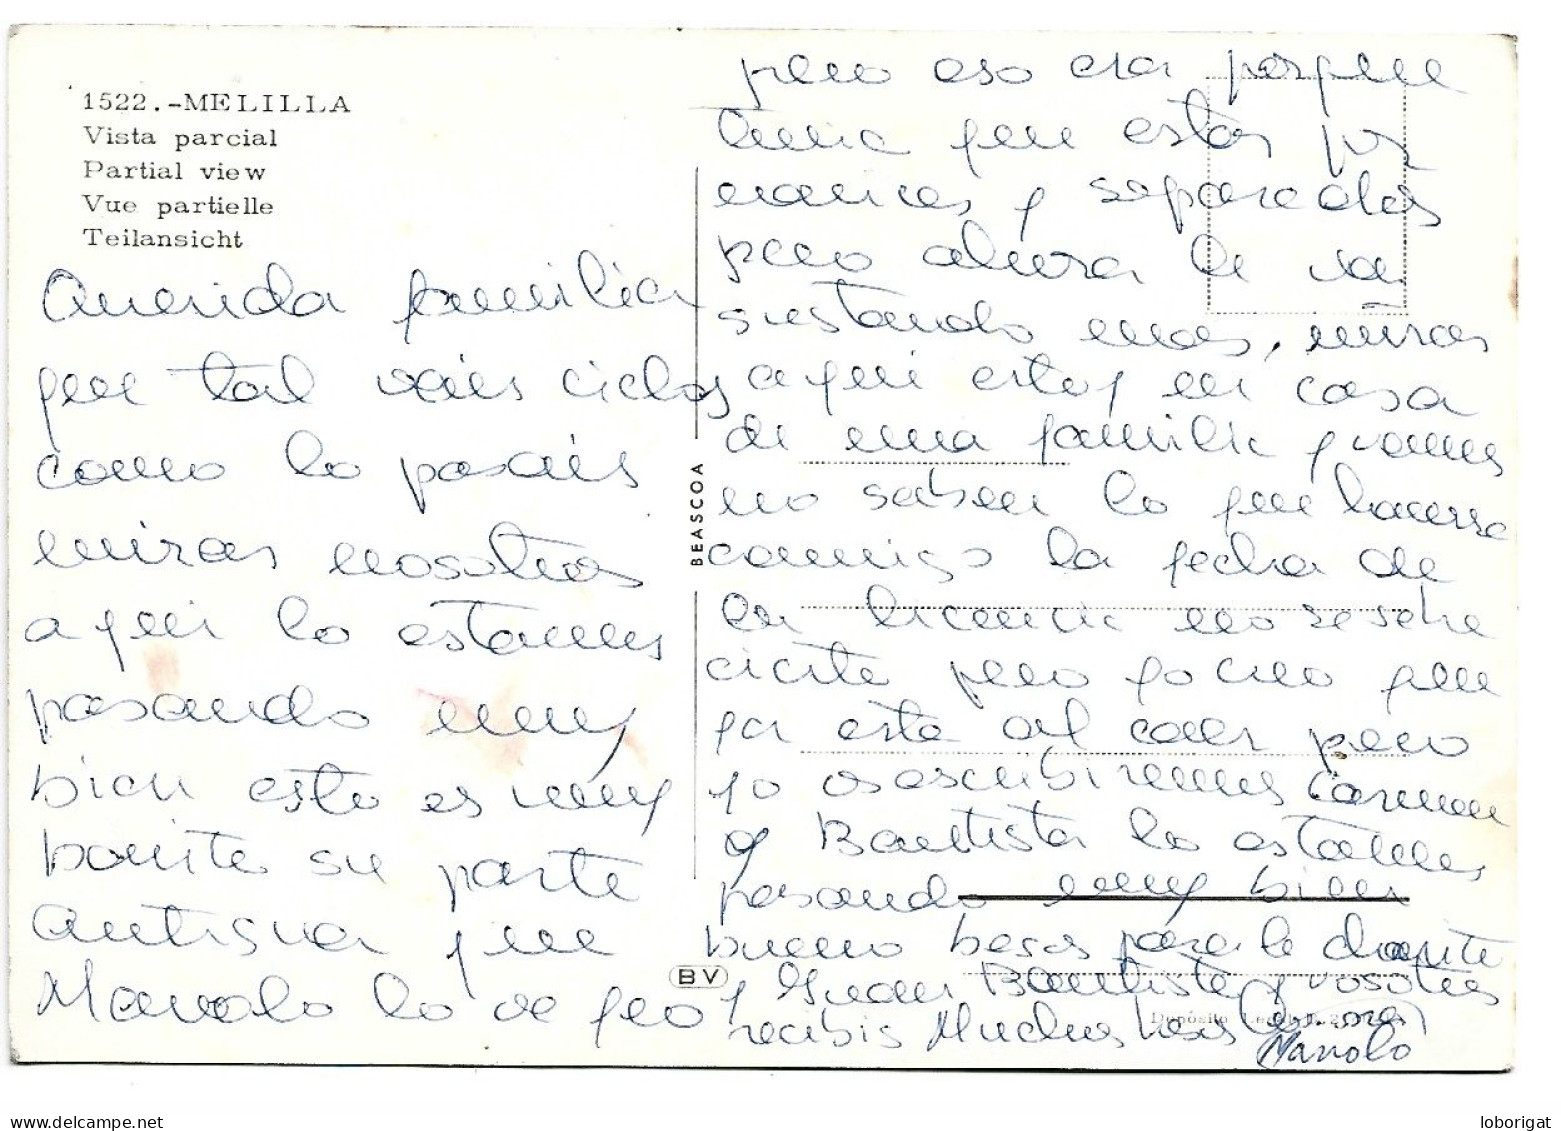 1522.-MELILLA
Vista parcial
Partial view
Vue partielle
Teilansicht
Querida familia
que tal vais ciclos
como lo pasáis
miras nosotros
aqui lo estamos
pasando muy
bien esto es muy
bonito su parte
antigua que
Manolo lo ve feo
pero eso era porque
tenia que estar por
narices y separados
pero ahora le va
gustando mas, miras
aqui estoy en casa
de una familia y vamos
no saben lo que hacerse
conmigo la fecha de
la licencia no se sabe
cierta pero como que
ya esta al caer pero
yo os escribiremos Carmen
y Bautista lo estamos
pasando muy bien
bueno besos para la
y Juan Bautista y vosotros
recibis Muchos besos
Manolo
BEASCOA
BV
Depósito Legal B.
loborigat